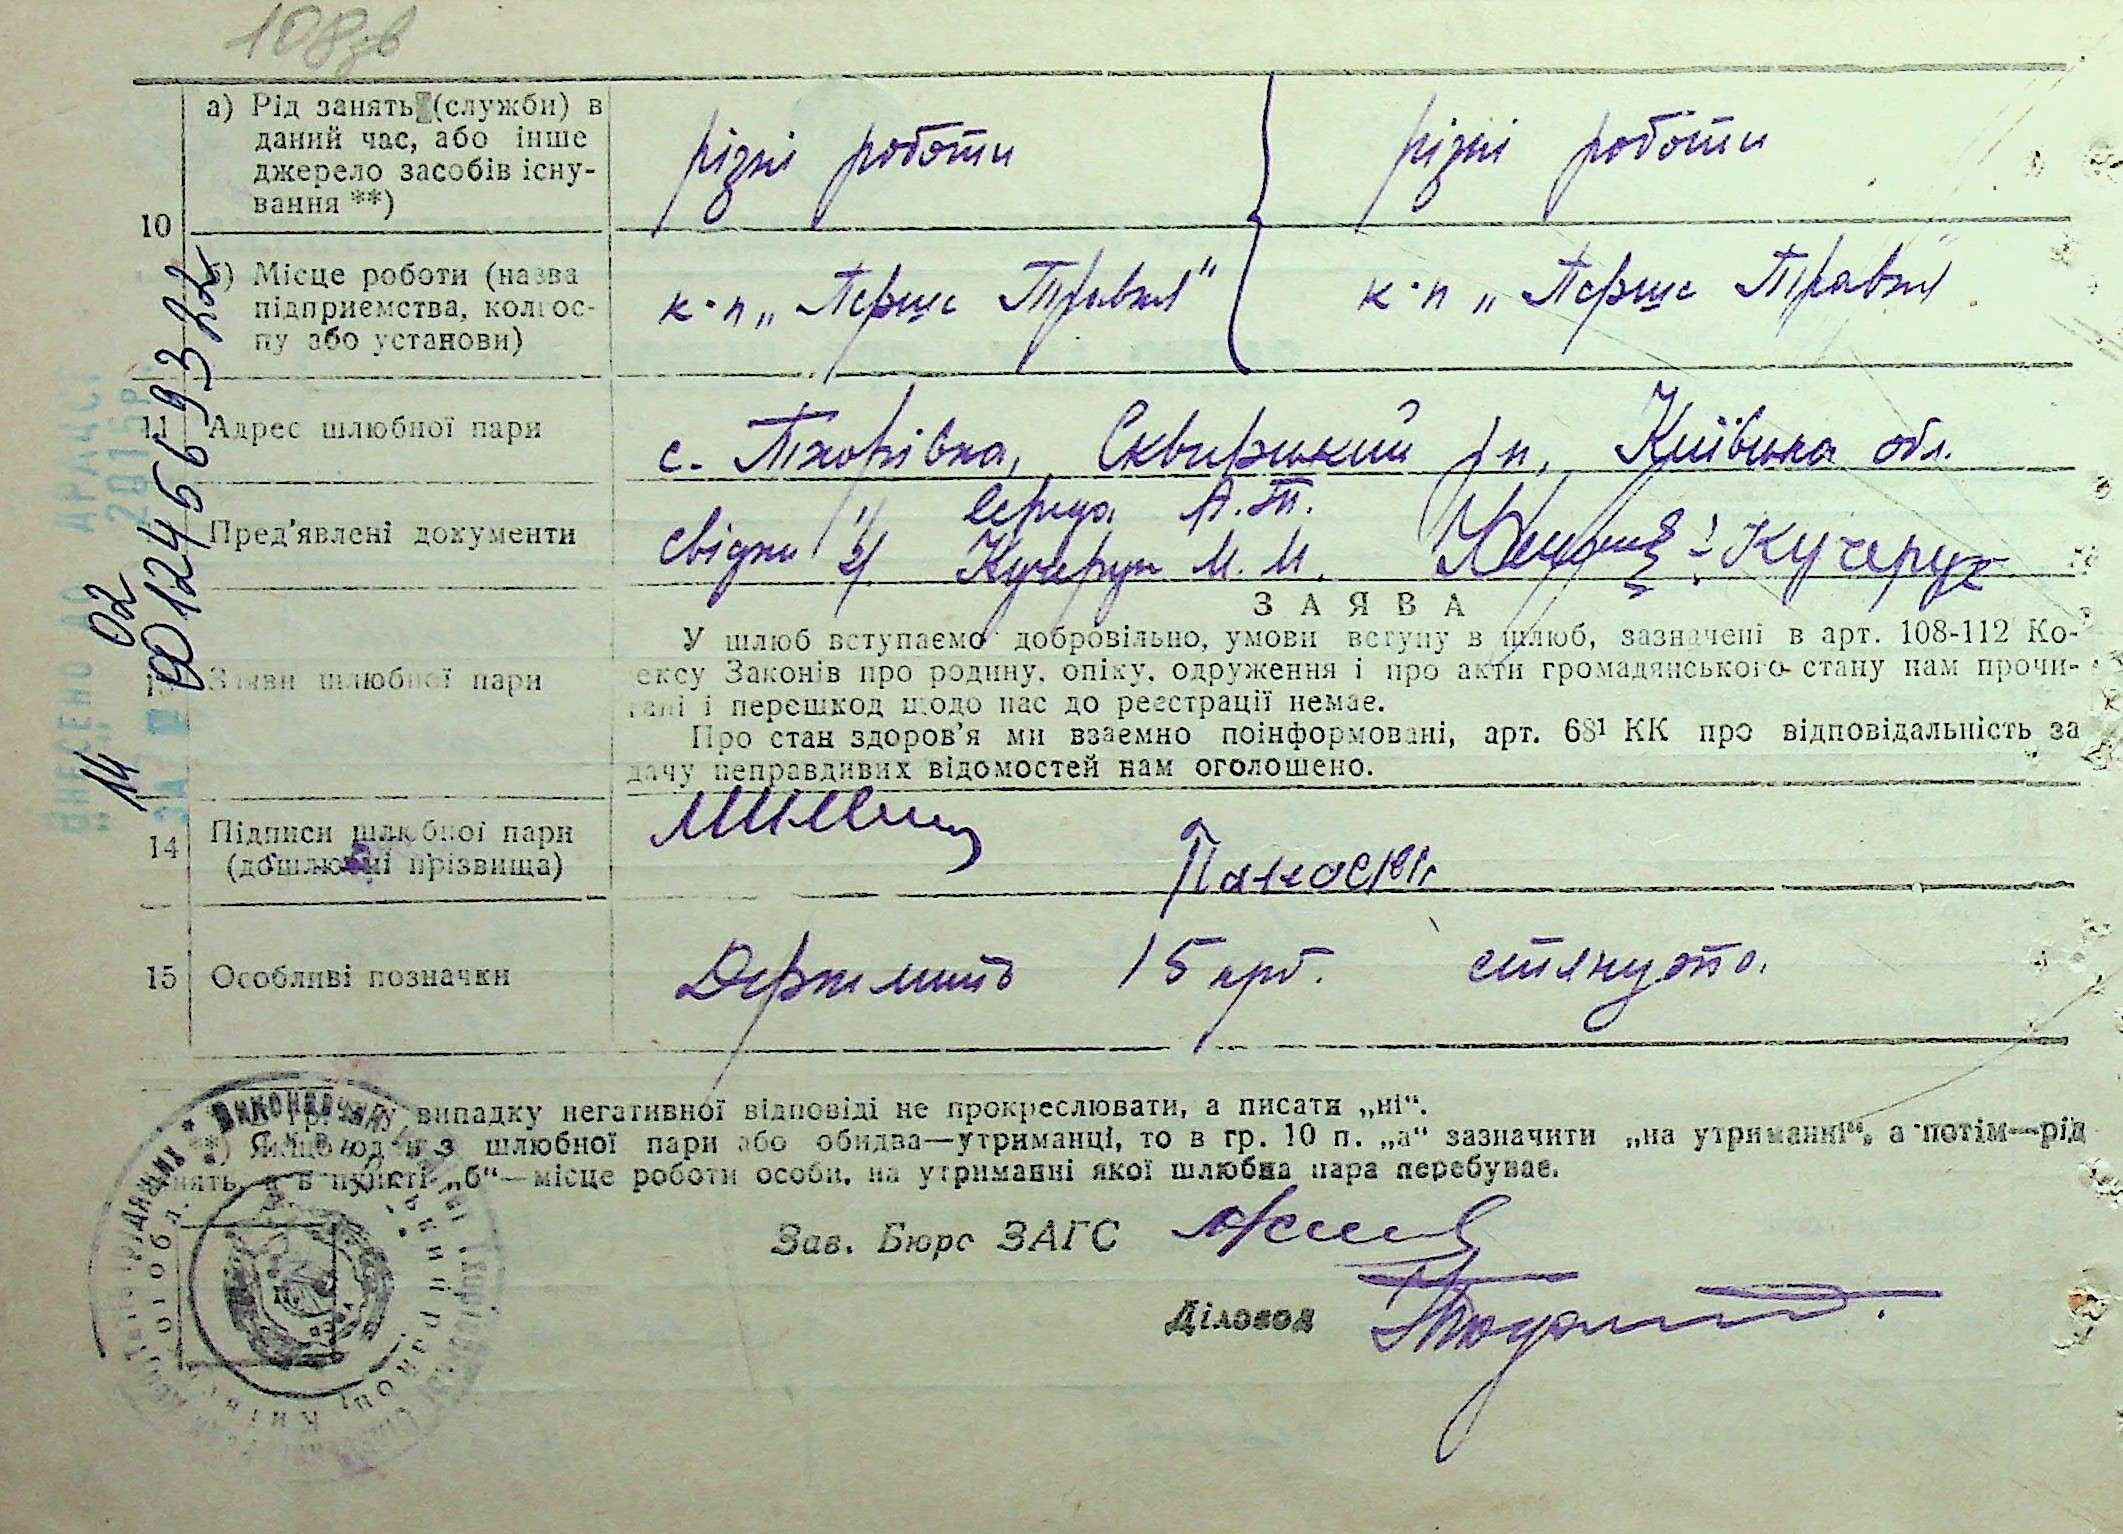 108зв
а) Рід занять (служби) в
даний час, або інше
джерело засобів існу-
вання **)
різні роботи
різні роботи
10
б) Місце роботи (назва
підприємства, колгос-
пу або установи)
к-п „Перше Травня"
к-п „Перше Травня
11 Адрес шлюбної пари
с. Тхорівка, Сквирський р-н, Київська обл.
Пред'явлені документи
свідки 1/ Середа А. П.
2/ Кучерук М. М. Кучерук
ЗАЯВА
Заяви шлюбної пари
У шлюб вступаємо добровільно, умови вступу в шлюб, зазначені в арт. 108-112 Ко-
ексу Законів про родину, опіку, одруження і про акти громадянського стану нам прочи-
тані і перешкод щодо нас до реєстрації немає.
Про стан здоров'я ми взаємно поінформовані, арт. 68¹ КК про відповідальність за
дачу неправдивих відомостей нам оголошено.
14 Підписи шлюбної пари
(дошлюбні прізвища)
15 Особливі позначки
Держмито 15 крб. стягнуто.
випадку негативної відповіді не прокреслювати, а писати „ні".
**) Якщо один з шлюбної пари або обидва—утриманці, то в гр. 10 п. „а" зазначити „на утриманні", а потім—рід
занять, а в пункті „б"—місце роботи особи, на утриманні якої шлюбна пара перебуває.
Зав. Бюро ЗАГС
Діловод
ВНЕСЕНО ДО ДРАЦСГ
2015р.
14 02
00124569322